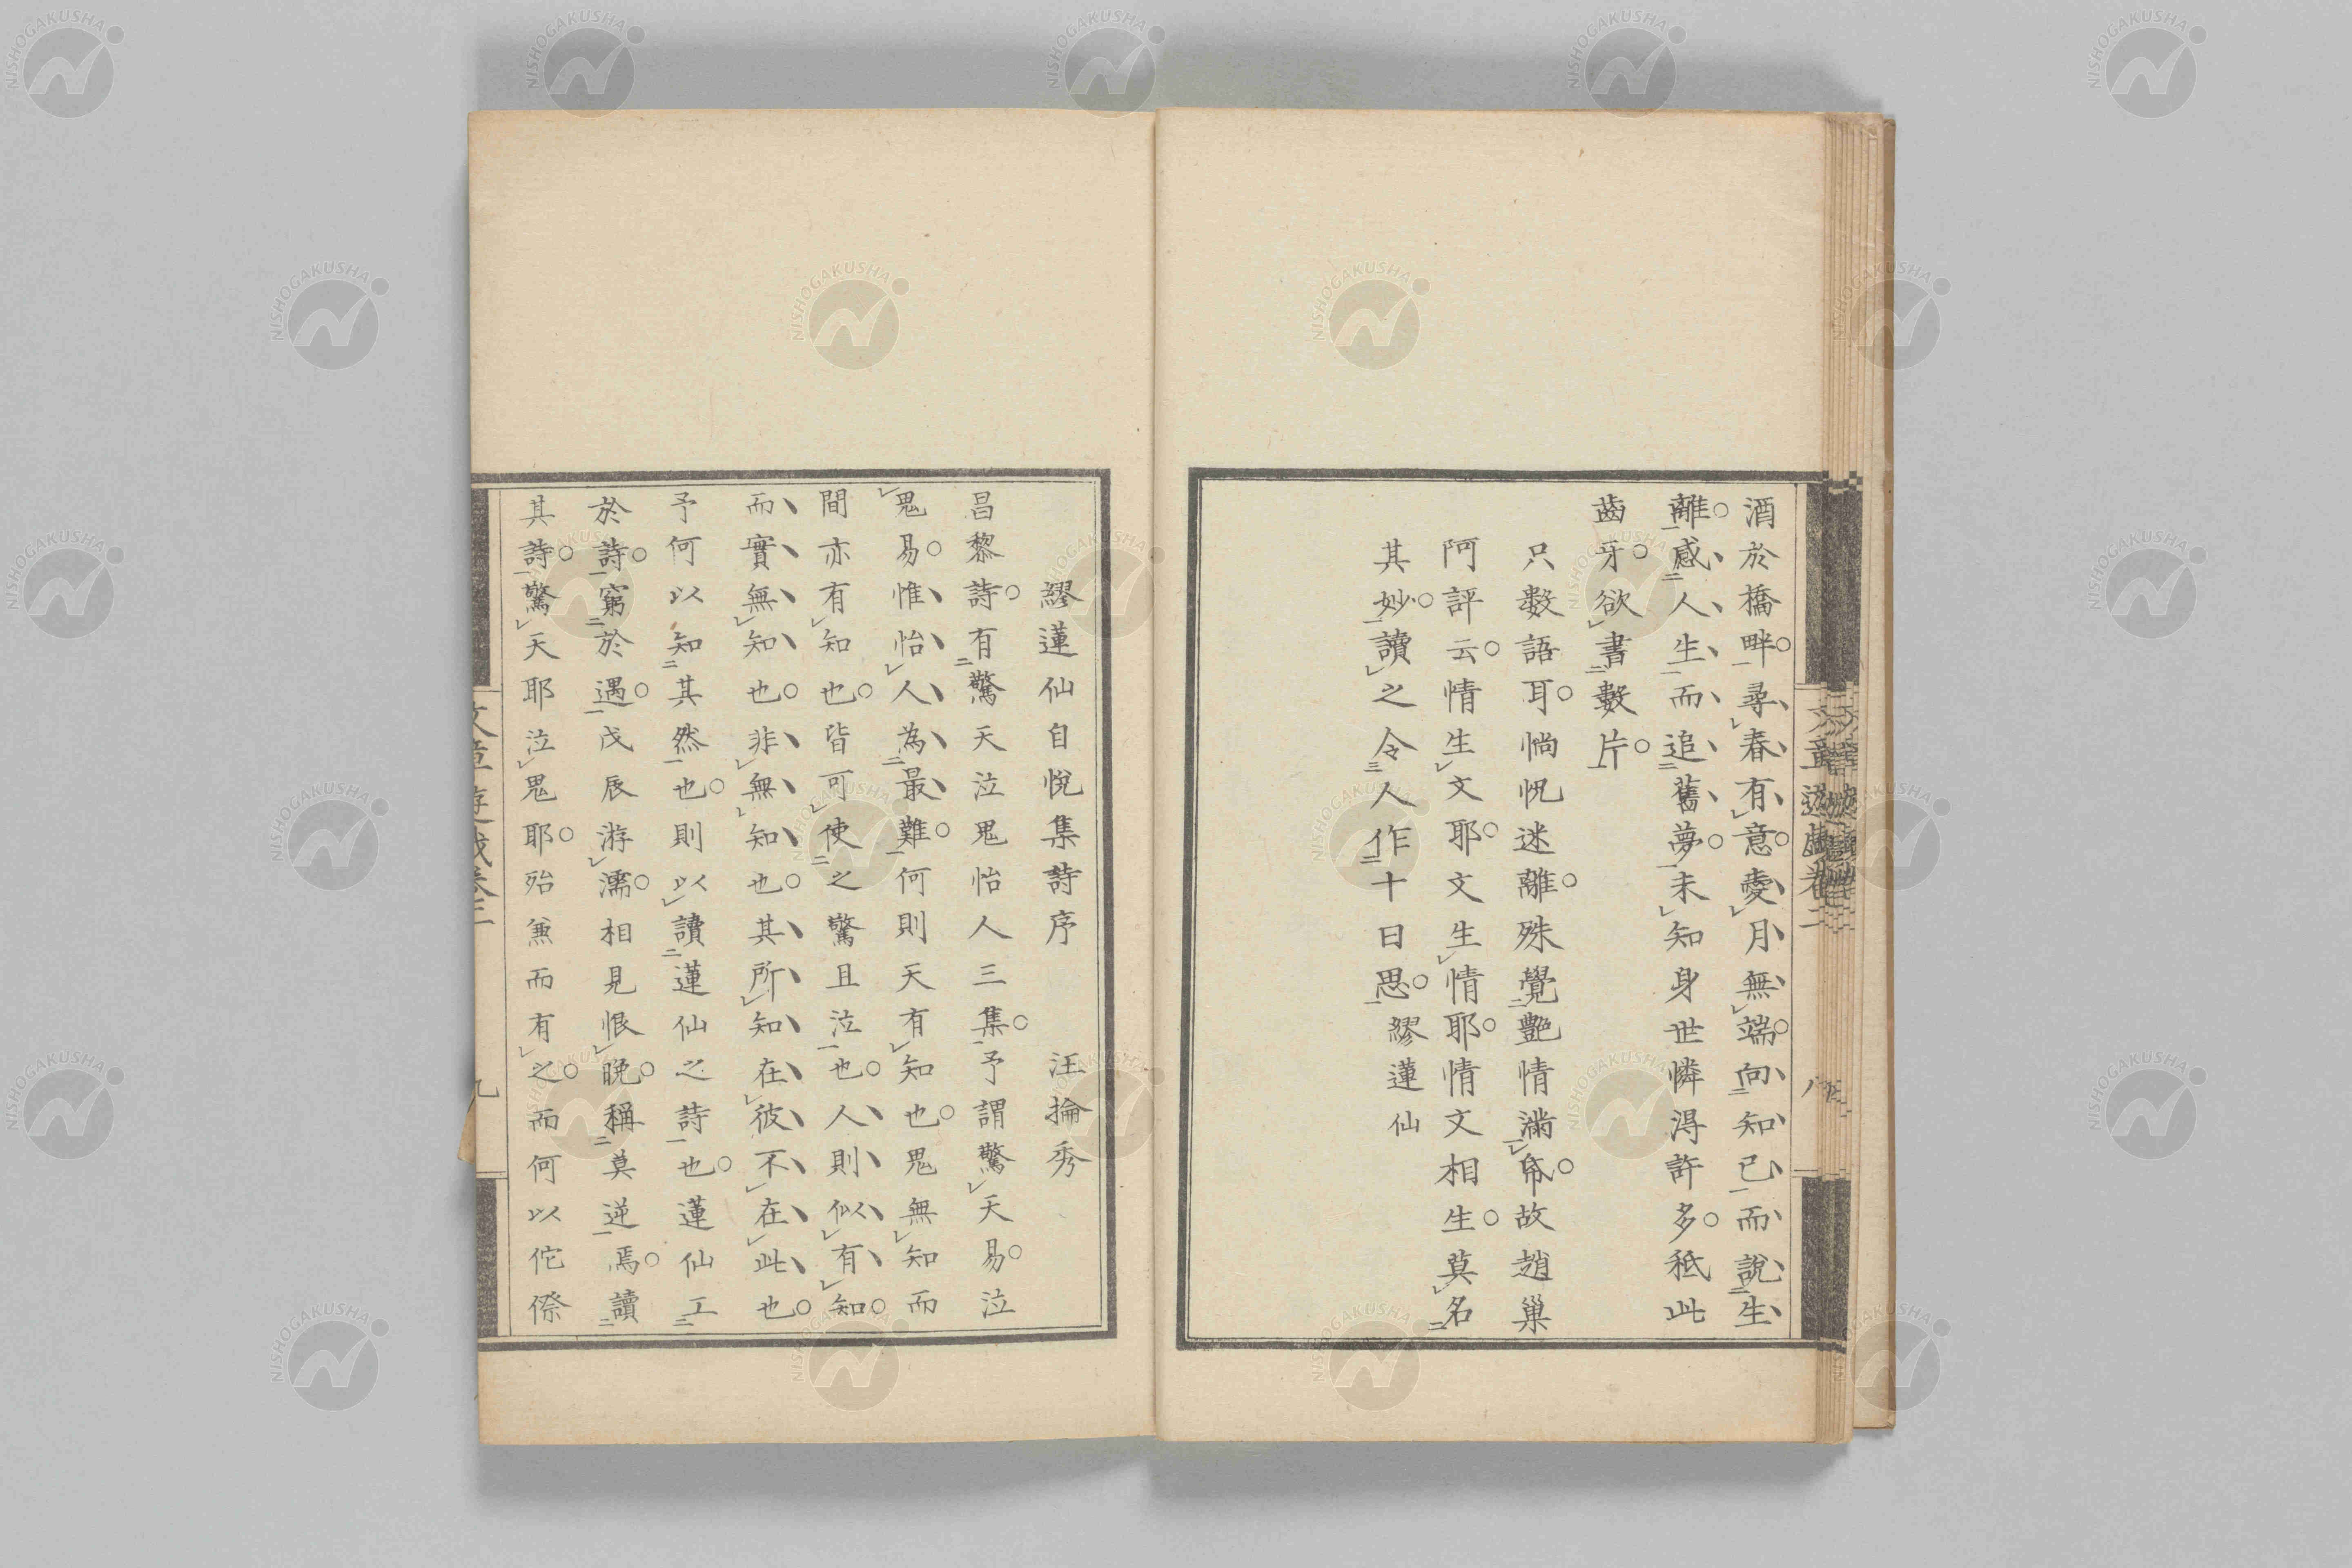 酒於橋畔。尋春有意。愛月無端。向知己而說生
離。感人生而追舊夢。未知身世憐得許多。秪此
齒牙。欲書數片。
只數語耳。惝怳迷離。殊覺艷情滿帋。故趙巢
阿評云。情生文耶。文生情耶。情文相生。莫名
其妙。讀之令人作十日思。繆蓮仙
繆蓮仙自悅集詩序 汪掄秀
昌黎詩。有驚天泣鬼怡人三集。予謂驚天易。泣
鬼易。惟怡人為最難。何則天有知也。鬼無知而
間亦有知也。皆可使之驚且泣也。人則似有知。
而實無知也。非無知也。其所知在彼不在此也。
予何以知其然也。則以讀蓮仙之詩也。蓮仙工
於詩。窮於遇。戊辰游濡。相見恨晚。稱莫逆焉。讀
其詩。驚天耶泣鬼耶。殆兼而有之。而何以侘傺
文章游戲卷三
九
NISHOGAKUSHA